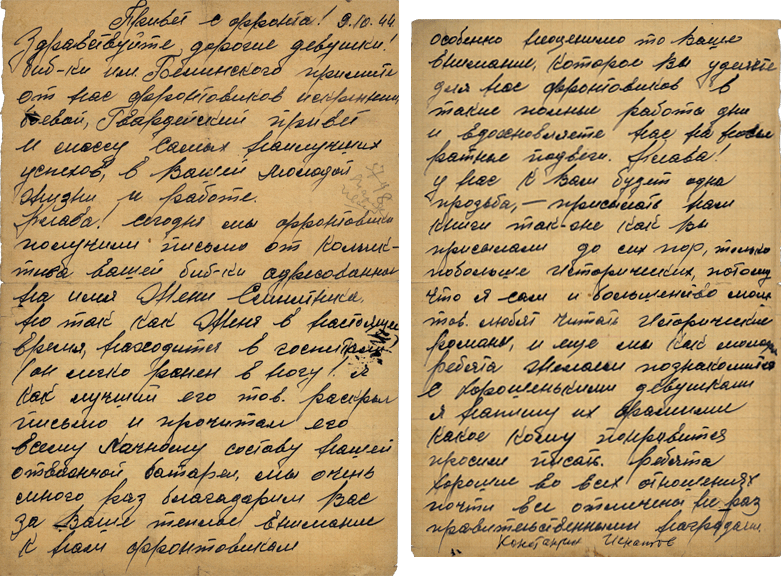 Привет с фронта! 9.10.44
Здравствуйте, дорогие девушки!
биб-ки им. Белинского примите
от нас фронтовиков искренний,
боевой, Гвардейский привет
и массу самых наилучших
успехов, в Вашей молодой
жизни и работе.
Клава! сегодня мы фронтовики
получили письмо от коллек-
тива вашей биб-ки адресованное
на имя Жени Синитника,
но так как Женя в настоящее
время, находится в госпитале
(он легко ранен в ногу). Я
как лучший его тов. раскрыл
письмо и прочитал его
всему личному составу нашей
отважной батареи, мы очень
много раз благодарим Вас
за Ваше теплое внимание
к нам фронтовикам
особенно неоценимо то Ваше
внимание, которое Вы уделяете
для нас фронтовиков в
такие полные работы дни
и вдохновляете нас на новые
ратные подвеги. Клава!
у нас к Вам будет одна
прозьба, — присылать нам
книги так-же как Вы
присылали до сих пор, только
побольше исторических, потому
что я сам и большенство моих
тов. любят читать исторические
романы, и еще мы как молодые
ребята желаем познакомится
с хорошенькими девушками
я напишу их фамилии
какое кому понравится
просим писать. Ребята
хорошие во всех отношениях
почти все отмечены не раз
правительственными наградами.
Константин Игнатов